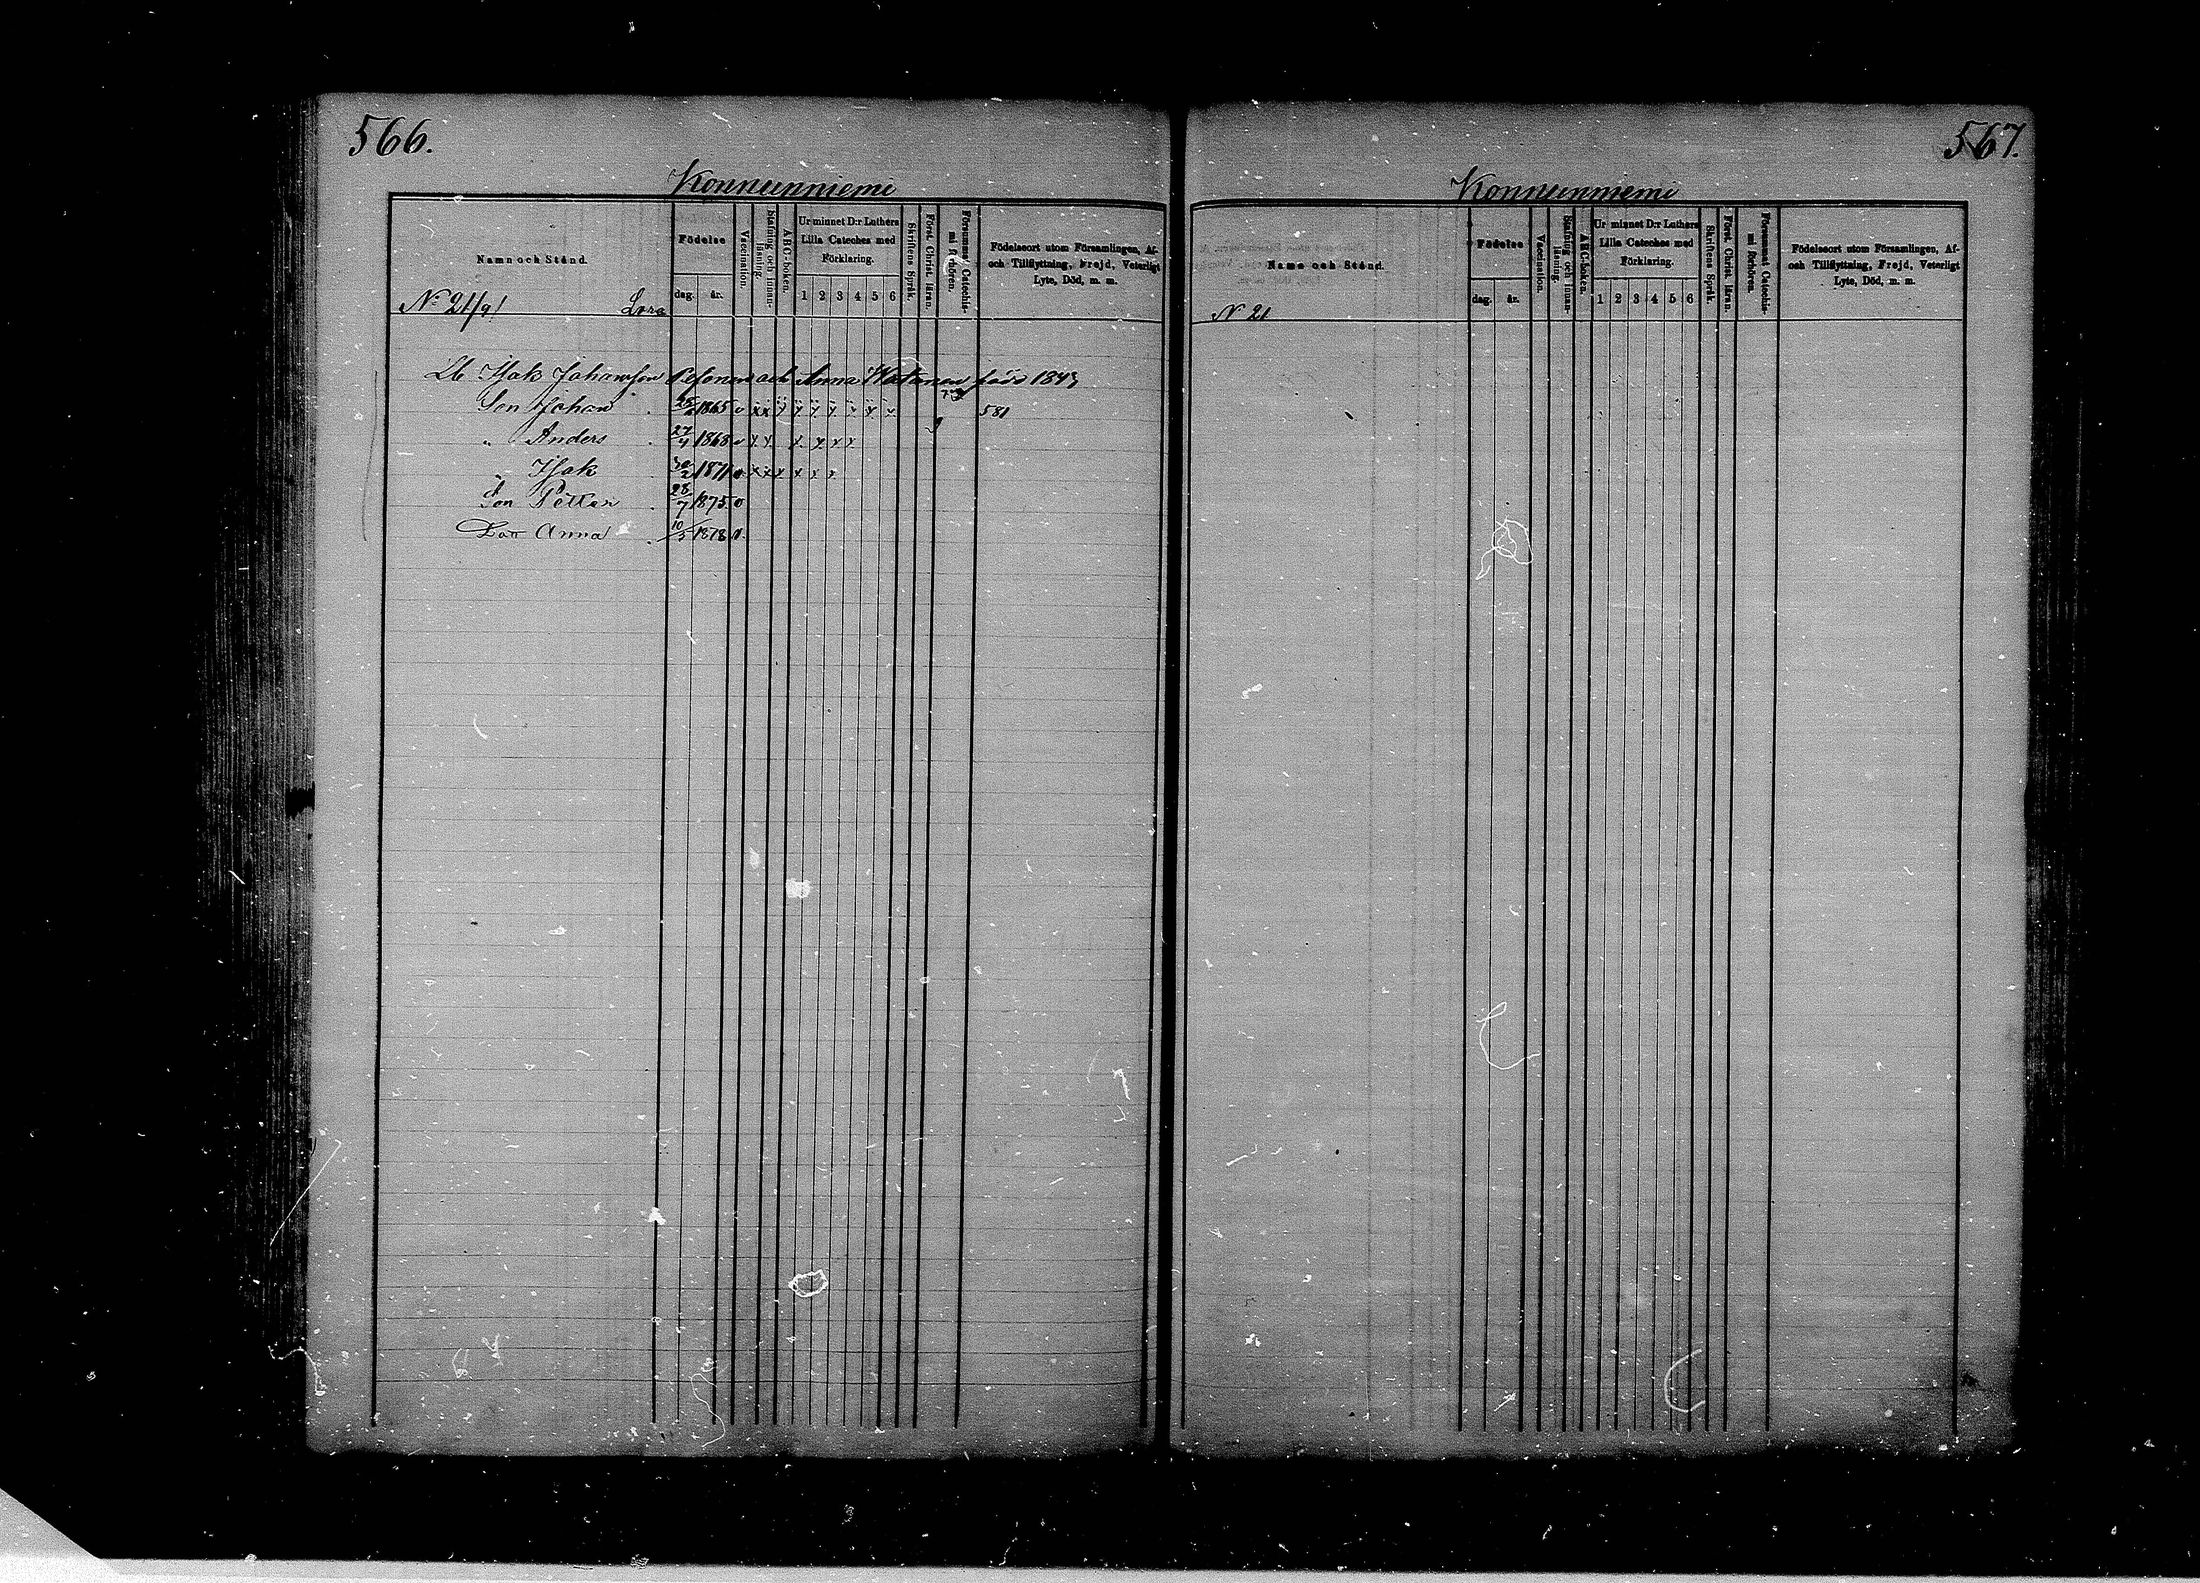 566.
Konnunniemi
Namn och Stånd.
Födelse
dag. år.
Vaccination.
Stafning och innanläsning.
ABC-boken.
Ur minnet D:r Luthers
Lilla Cateches med
Förklaring.
1 2 3 4 5 6
Skriftens Språk.
Först. Christ. läran.
Försummat Catechismi förhören.
Födelseort utom Församlingen, Af-
och Tillflyttning, Frejd, Veterligt
Lyte, Död, m. m.
No 21/9/
Isak Johansson och Anna född 184
Son Johan 1865 v x x 581
" Anders 27/4 1868 v x x x x x x
" Isak 30/2 1871 x x x x x x
Son Petter 28/7 1875 v
Dotr Anna 10/3 1878 v.
567.
Konnunniemi
Namn och Stånd.
Födelse
dag. år.
Vaccination.
Stafning och innanläsning.
ABC-boken.
Ur minnet D:r Luthers
Lilla Cateches med
Förklaring.
1 2 3 4 5 6
Skriftens Språk.
Först. Christ. läran.
Försummat Catechismi förhören.
Födelseort utom Församlingen, Af-
och Tillflyttning, Frejd, Veterligt
Lyte, Död, m. m.
No 21